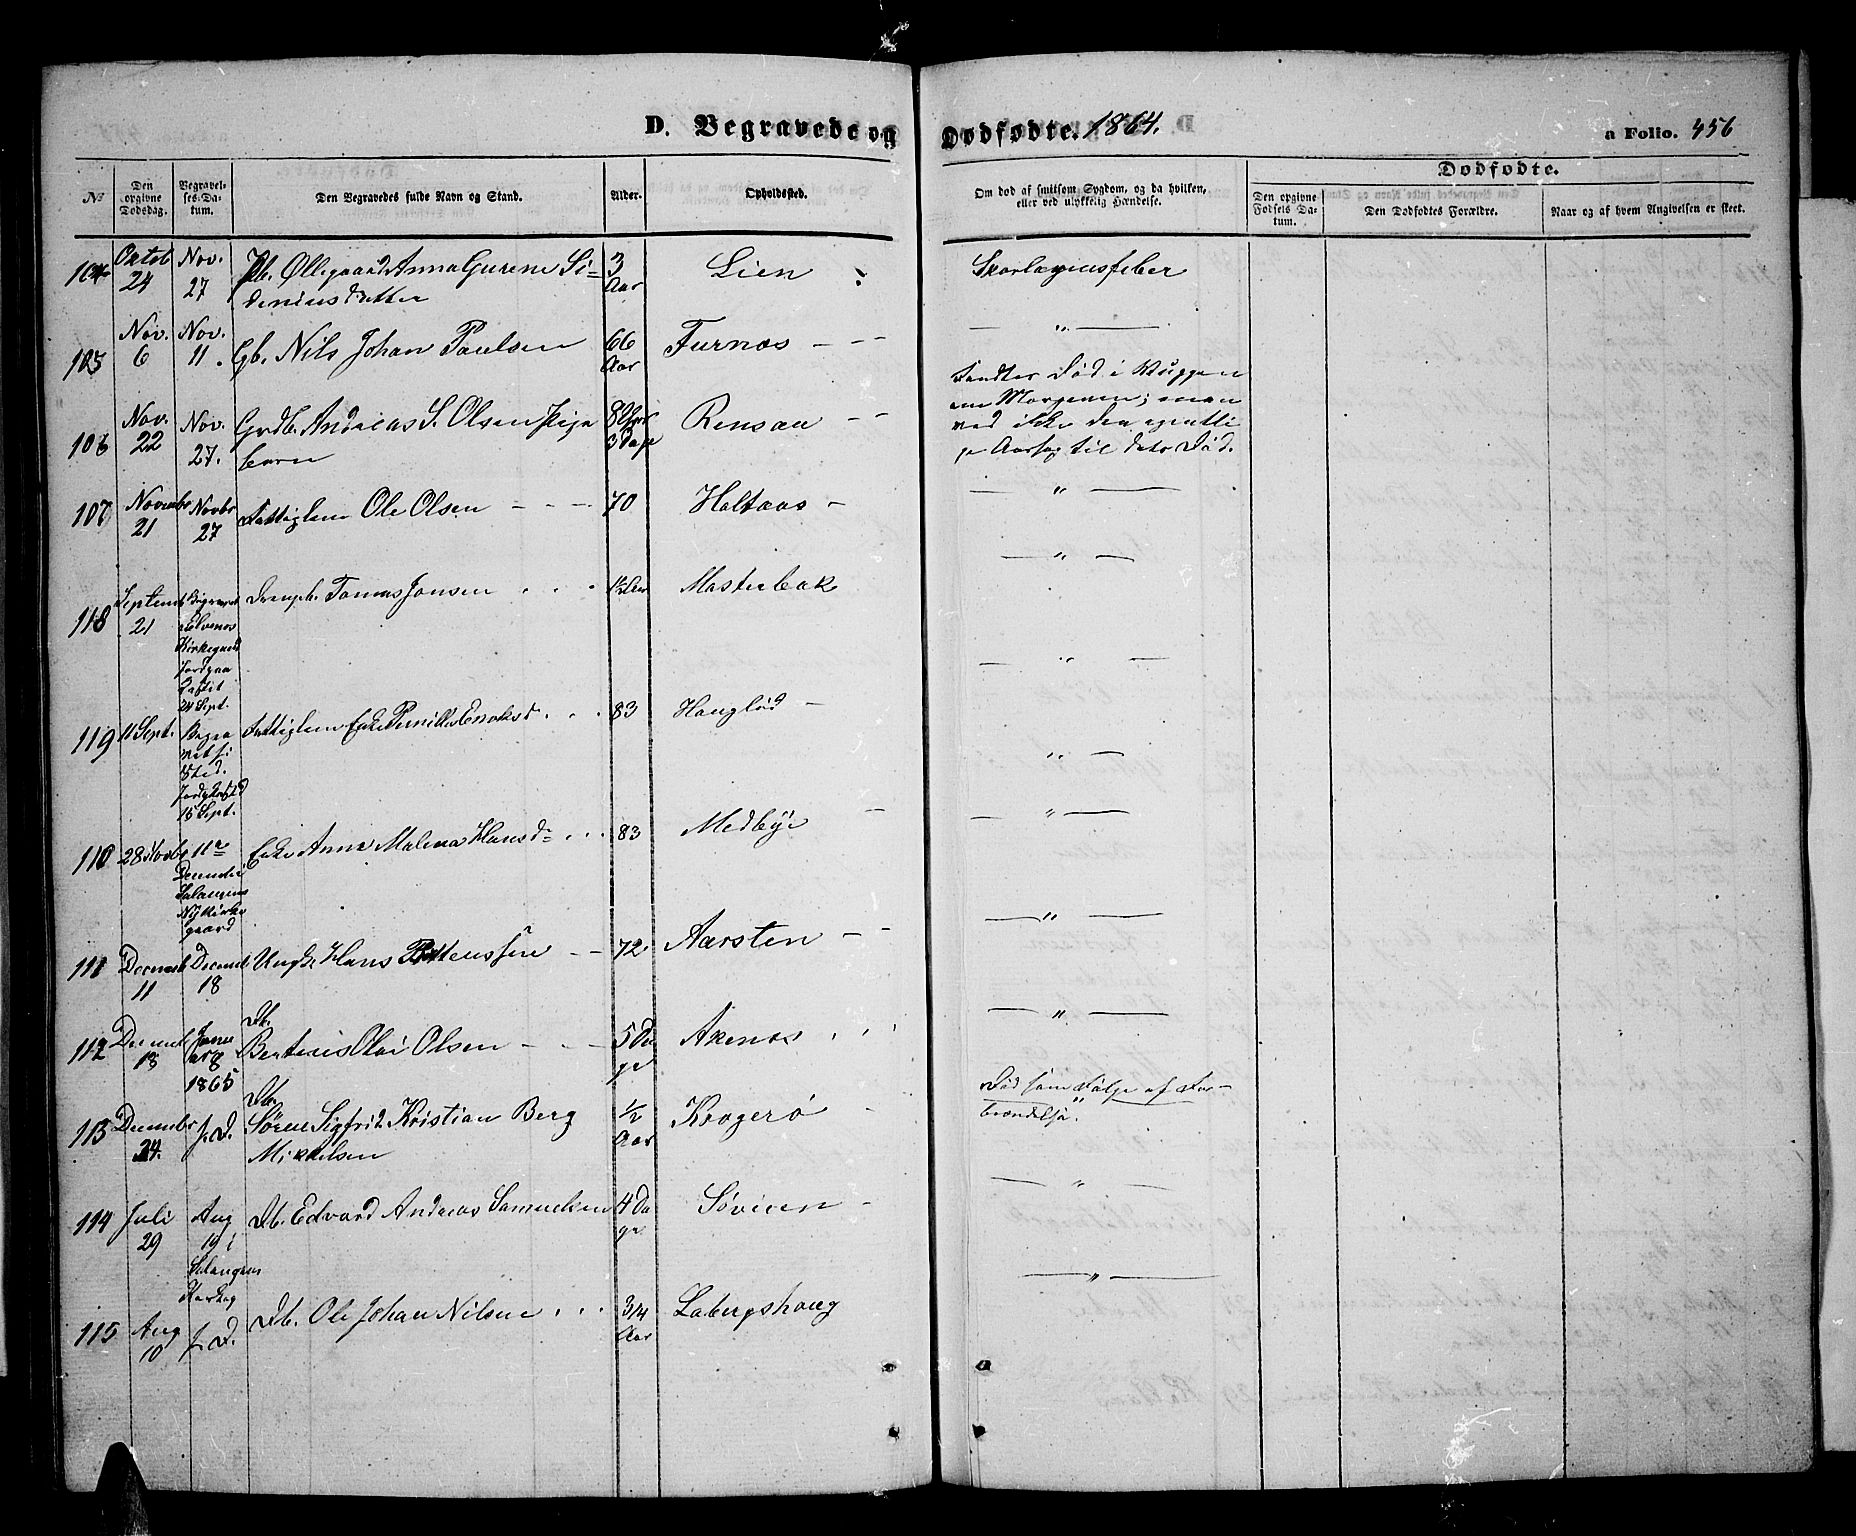 D. Begravede og Dødfødte. 1864.
a Folio. 456
No
Den opgivne Dødsdag.
Begravelses-Datum.
Den Begravedes fulde Navn og Stand.
Alder.
Opholdssted.
Om død af smitsom Sygdom, og da hvilken, eller ved ulykkelig Hændelse.
Dødfødte.
Den opgivne Fødsels Datum.
Den Dødfødtes Forældre.
Naar og af hvem Angivelsen er skeet.
104 Octob 24 Nov. 27 Pb. Ollegaard Anna Gurene Si=
deniusdatter 3 Aar Lien Skarlagensfeber
105 Nov. 6 Nov. 11. Gb. Nils Johan Paulsen 66 Aar Furnæs — " —
106 Nov. 22 Nov. 27. Andreas S. Olsen
born 3 Dage Rensaa
Fandtes Død i Vuggen
om Morgenen; man
ved ikke den egentli
ge Aarsag til dets Død.
107 Novembr 21 Novbr 27 Fattiglem Ole Olsen 70 Holtaas — " —
118 Septemb 21 Begravet
Elvenes
Kirkegaard
Jordpaa
kastet
24 Sept.
Drengeb. Tomas Jonsen 1½ Aar Mosterbak — " —
119 11 Sept. Begra
vet si
Sted.
15 Sept.
Fattiglem Enke Pernille Enoksd. 83 — " —
110 28 Novbr 11te
December
Salangens
Nykirke
gaard
Enke Anna Malena Hansd= 83 Medbye — " —
111 Decemb 11 Decemb 18 Ungk. Hans 72 Aarsten — " —
112 Decemb 18 Janu
ar 8
1865
Db.
Berteus Olai Olsen 5 Da
ge Axenæs — " —
113 Decembr 24. s. D. Db.
Sören Sigfrid Kristian Berg
Mikkelsen ½ Aar Krogerö
Död som Følge af For-
brændelse.
114 Juli 29 Aug 19 i
Salangens
Db. Edvard Andreas Samuelsen 4 Da
ge Søvien — " —
115 Aug 10 s. D. Db. Ole Johan Nilsen 3/4 Aar Labergshaug — " —